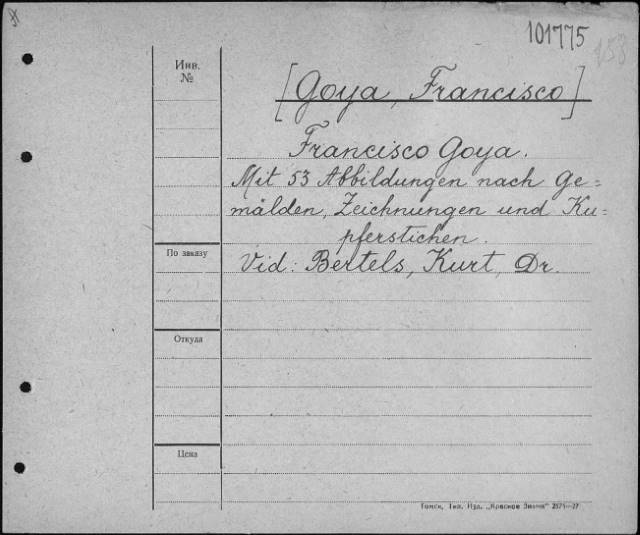 101775
153
Инв.
№
[Goya, Francisco]
Francisco Goya.
Mit 53 Abbildungen nach Ge=
mälden, Zeichnungen und Ku=
pferstichen.
По заказу
Vid: Bertels, Kurt, Dr.
Откуда
Цена
Томск, Тип. Изд. „Красное Знамя" 2571—27